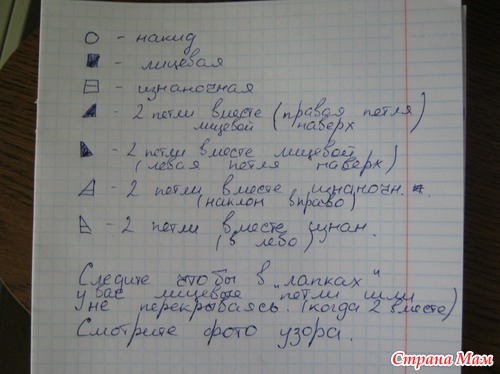 - накид
- лицевая
- изнаночная
- 2 петли вместе (правая петля
лицевой наверх)
- 2 петли вместе лицевой
(левая петля наверх)
- 2 петли вместе изнаночн.
(наклон вправо)
- 2 петли вместе изнан.
(в лево)
Следите что бы в „лапках"
у вас лицевые петли шли
не перекрываясь. (когда 2 вместе)
Смотрите фото узора.
Страна Мам